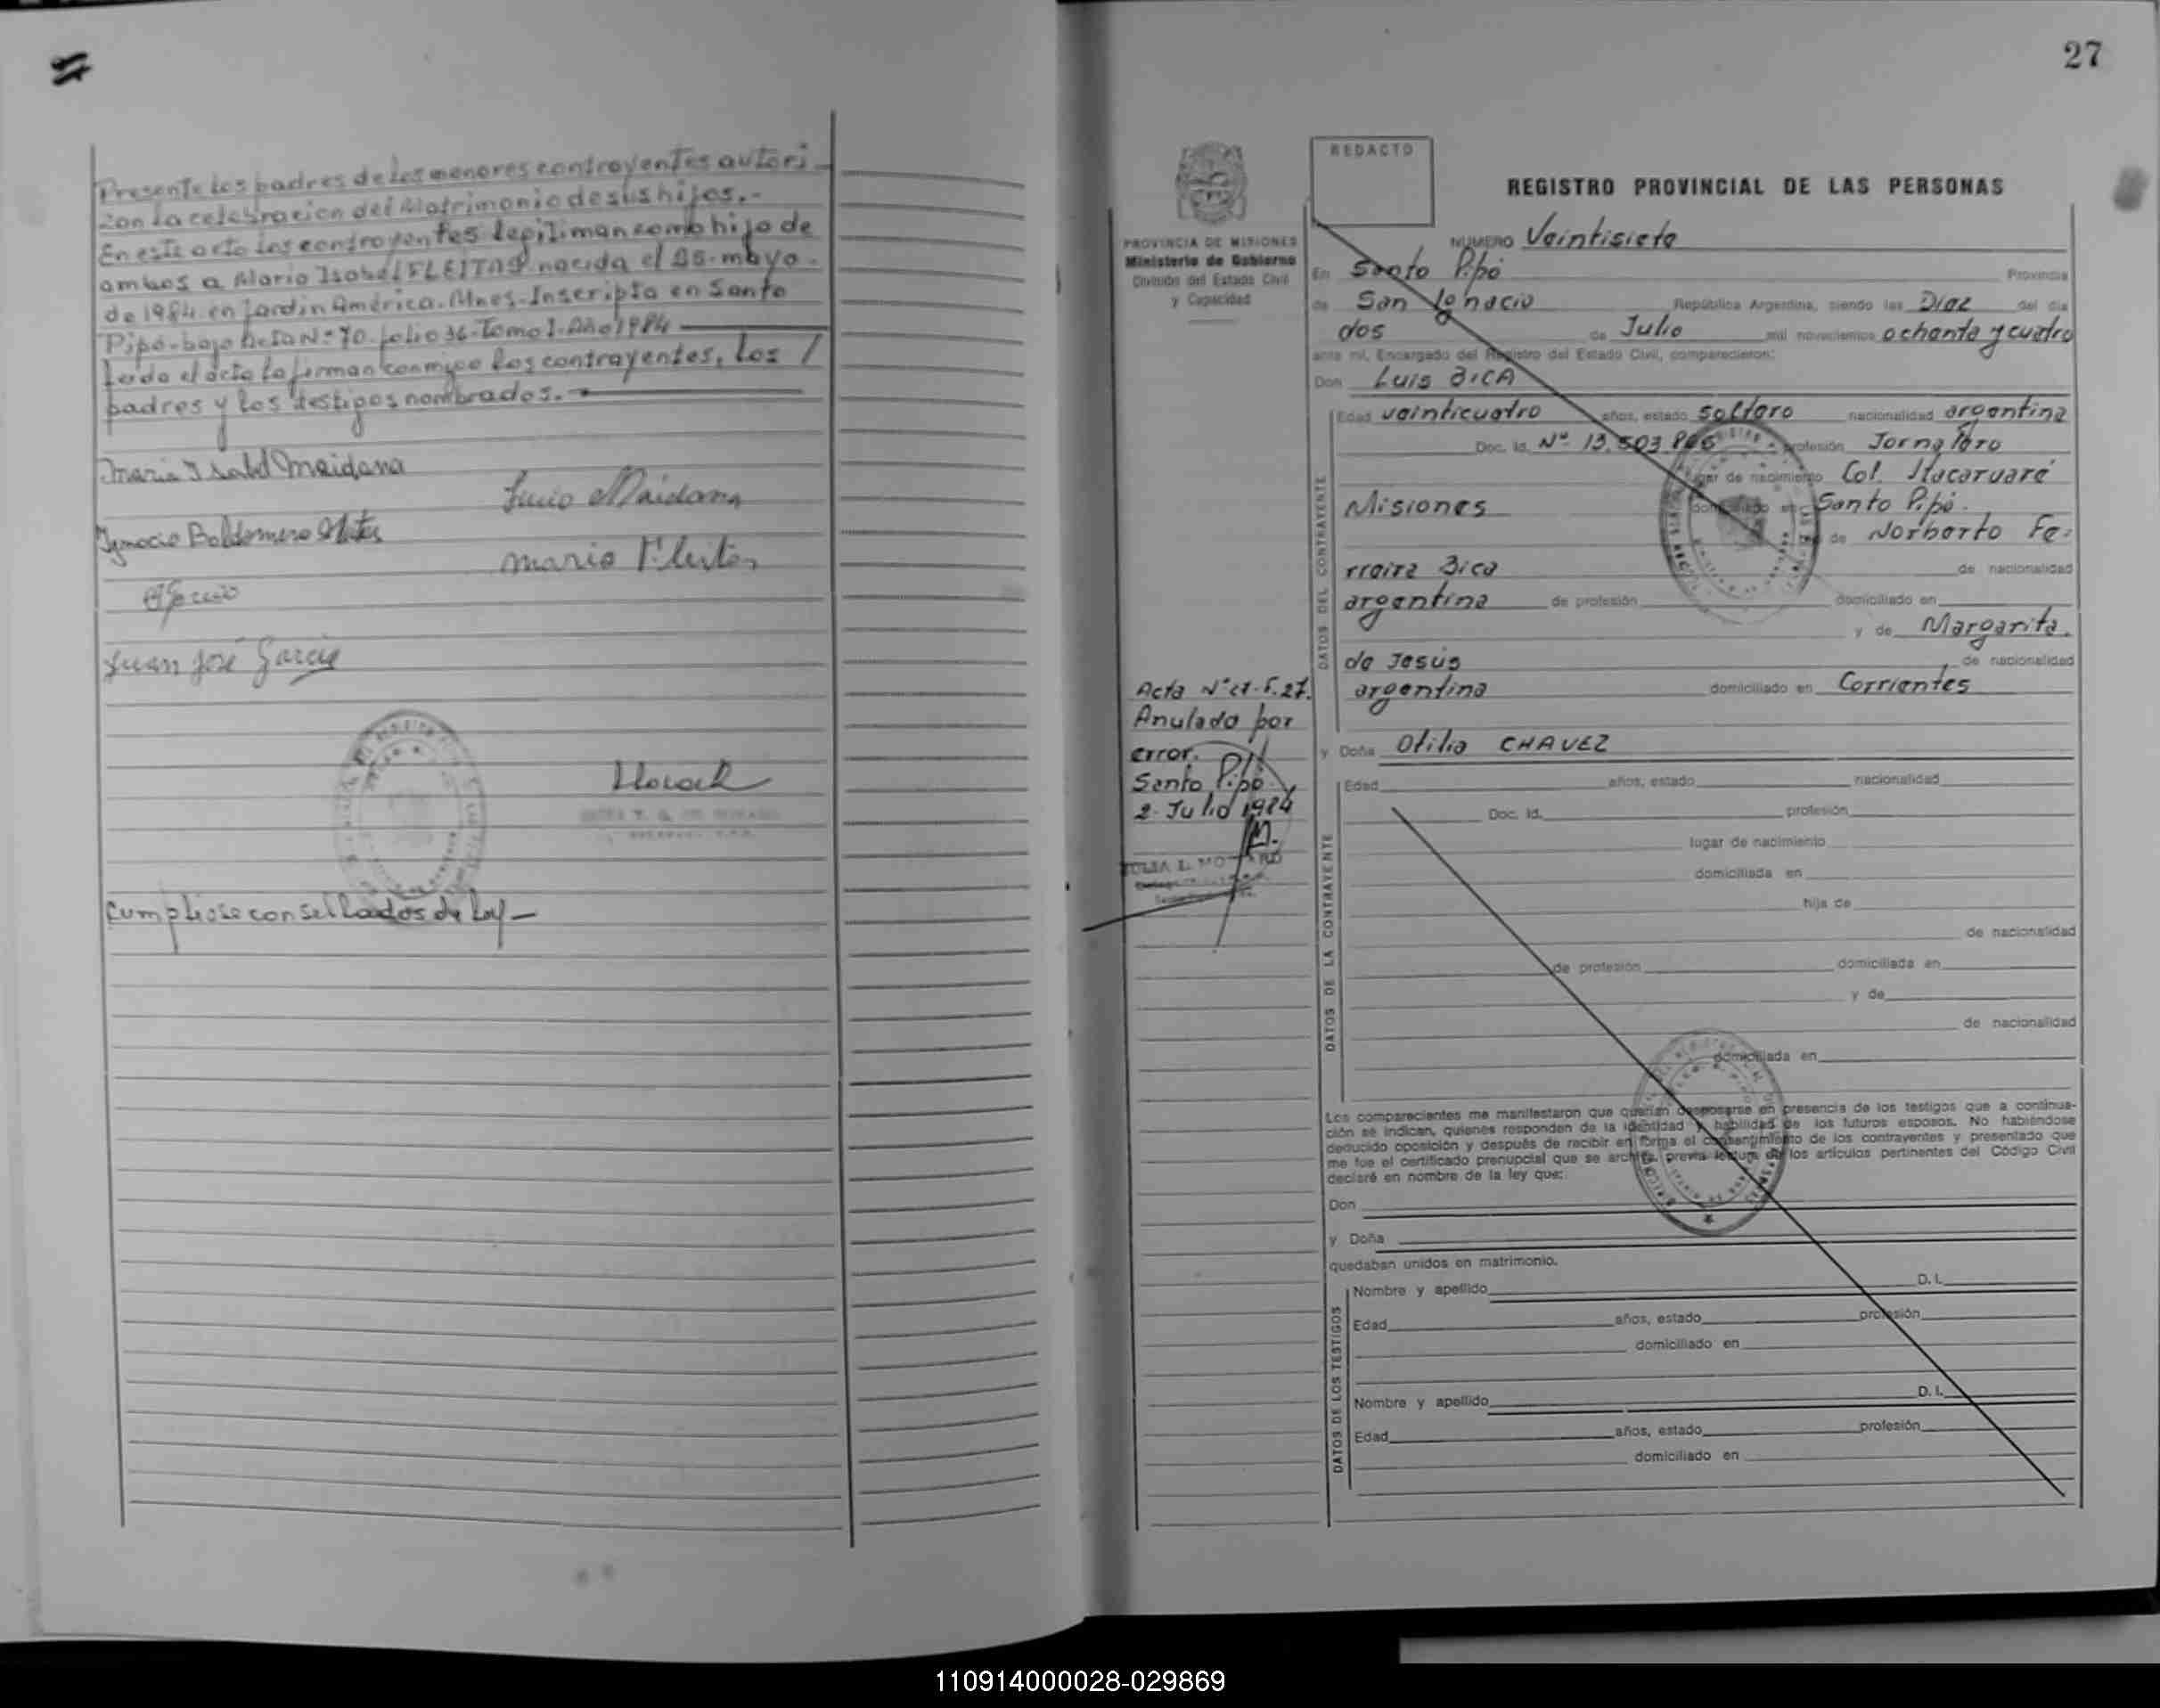 Presente los padres de los menores contrayentes autori
zan la celebracion del Matrimonio de sus hijos.-
En este acto los contrayentes legitiman como hijo de
ambos a Maria Isabel FLEITAS nacida el 25-mayo-
de 1984 en Jardin América. Mnes-Inscripta en Santo
Pipó-bajo Acta Nº 70-folio 36-Tomo I-Año 1984
leida el acta la firman conmigo los contrayentes, los /
padres y los testigos nombrados.-
Maria Isabel Maidana
Maidana
Ignacio Baldomero
Maria Fleitas
Juan José Garcia
Cumpliose con sellados de Ley-
27
PROVINCIA DE MISIONES
Ministerio de Gobierno
División del Estado Civil
y Capacidad
REDACTO
REGISTRO PROVINCIAL DE LAS PERSONAS
NUMERO Veintisiete
En Santo Pipó Provincia
de San Ignacio República Argentina, siendo las Diez del día
dos de Julio mil novecientos ochenta y cuatro
ante mí, Encargado del Registro del Estado Civil, comparecieron:
Don Luis BICA
DATOS DEL CONTRAYENTE
Edad veinticuatro años, estado soltero nacionalidad argentina
Doc. Id. Nº 13.503.866 profesión Jornalero
lugar de nacimiento Col. Itacaruaré
Misiones domiciliado en Santo Pipó.
de Norberto Fe-
rreira Bica de nacionalidad
argentina de profesión domiciliado en
y de Margarita
de Jesús de nacionalidad
argentina domiciliado en Corrientes
Acta Nº 27-F.27.
Anulado por
error.
Santo Pipó
2-Julio 1984
y Doña Otilia CHAVEZ
DATOS DE LA CONTRAYENTE
Edad años, estado nacionalidad
Doc. Id. profesión
lugar de nacimiento
domiciliada en
hija de
de nacionalidad
de profesión domiciliada en
y de
de nacionalidad
domiciliada en
Los comparecientes me manifestaron que querían desposarse en presencia de los testigos que a continua-
ción se indican, quienes responden de la identidad y habilidad de los futuros esposos. No habiéndose
deducido oposición y después de recibir en forma el consentimiento de los contrayentes y presentado que
me fue el certificado prenupcial que se archiva, previa lectura de los artículos pertinentes del Código Civil
declaré en nombre de la ley que:
Don
y Doña
quedaban unidos en matrimonio.
DATOS DE LOS TESTIGOS
Nombre y apellido D. I.
Edad años, estado profesión
domiciliado en
Nombre y apellido D. I.
Edad años, estado profesión
domiciliado en
110914000028-029869